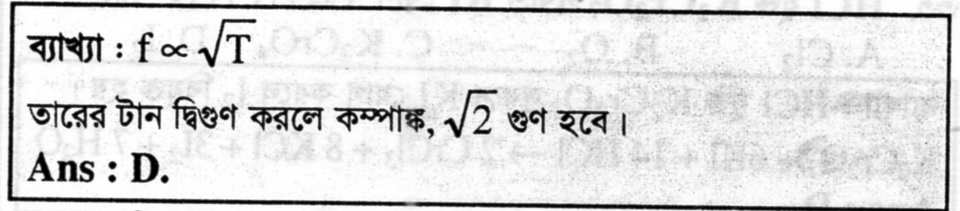 ব্যাখ্যা : f ∝ √T
তারের টান দ্বিগুণ করলে কম্পাঙ্ক, √2 গুণ হবে।
Ans : D.